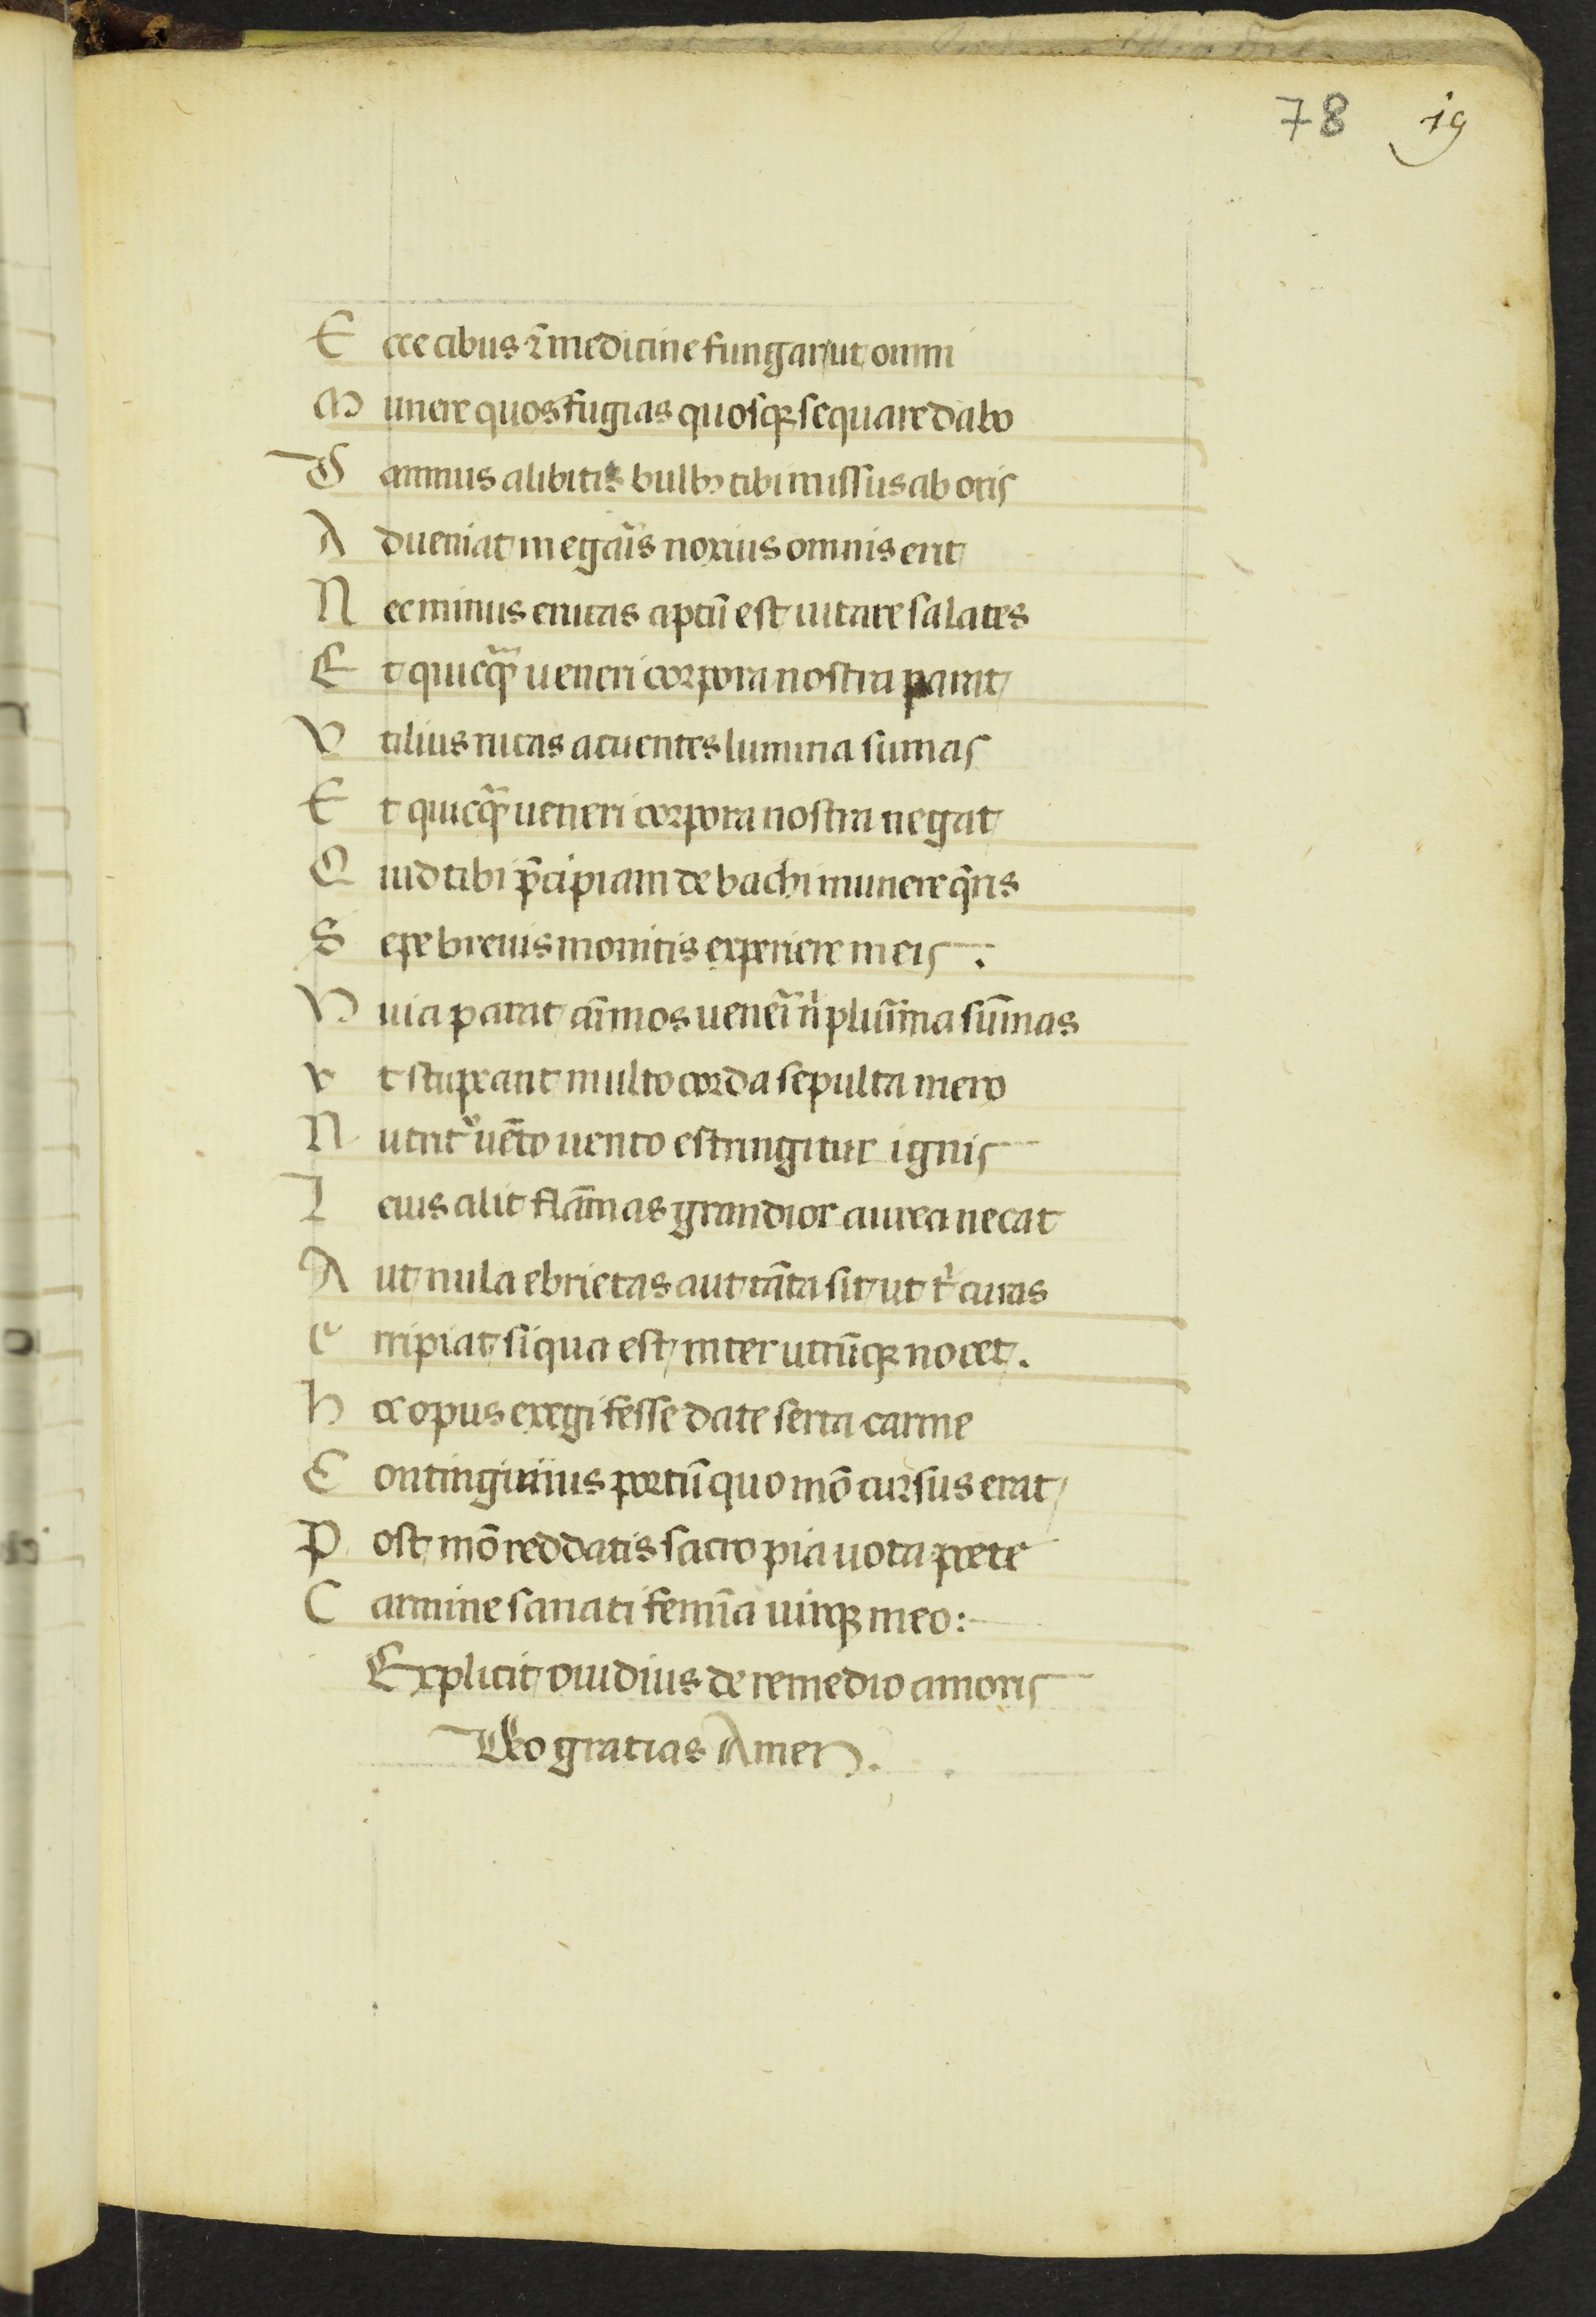 78 19
E cce cibus ⁊̄ medicine fungar ut omni
M unere quos fugias quosqꝫ sequare dabo
D annius alibitis bulbꝰ tibi missus ab oris
A dueniat megaris noxius omnis erit
N ec minus erucas aptū est uitare salaces
E t quicq̄ ueneri corpora nostra parat
V tilius rutas acuentes lumina sumas
E t quicq̄ ueneri corpora nostra negat
Q uid tibi p̄cipiam de bachi munere q̄ris
S epe breuis monitis experiere meis :
V ina parat aīmos ueneri nͥ plurīma sūmas
V t stupeant multo corda sepulta mero
N utritͬ uēto uento estringitur ignis
L euis alit flāmas grandior aurea necat
A ut nula ebrietas aut tāta sit ut tͥ curas
E rripiat siqua est inter utrūqꝫ nocet.
H oc opus exegi fesse date serta carine
C ontingimus portū quo mō cursus erat
P ost mō reddatis sacro pia uota poete
C armine sanati femīa uirqꝫ meo :
Explicit ouidius de remedio amoris
Deo gratias Amen.